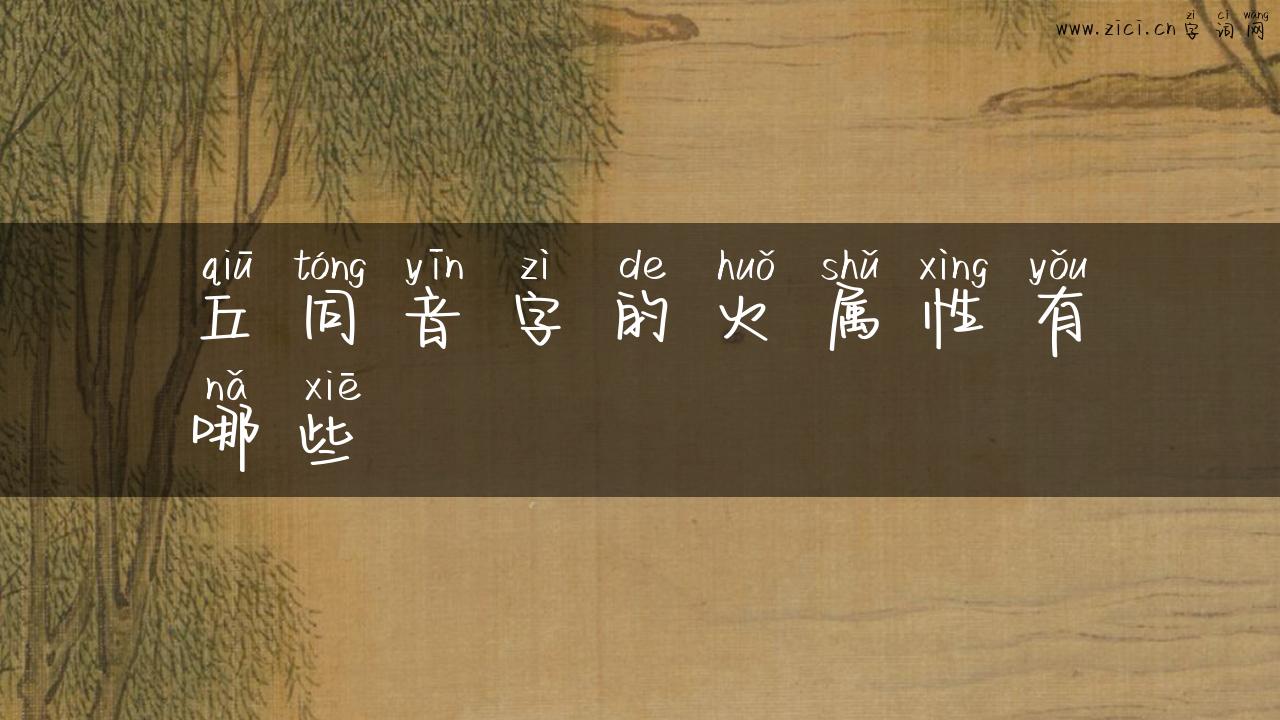 www.zici.cn字词网
zì cí wǎng
qiū tóng yīn zì de huǒ shǔ xìng yǒu
丘同音字的火属性有
nǎ xiē
哪些